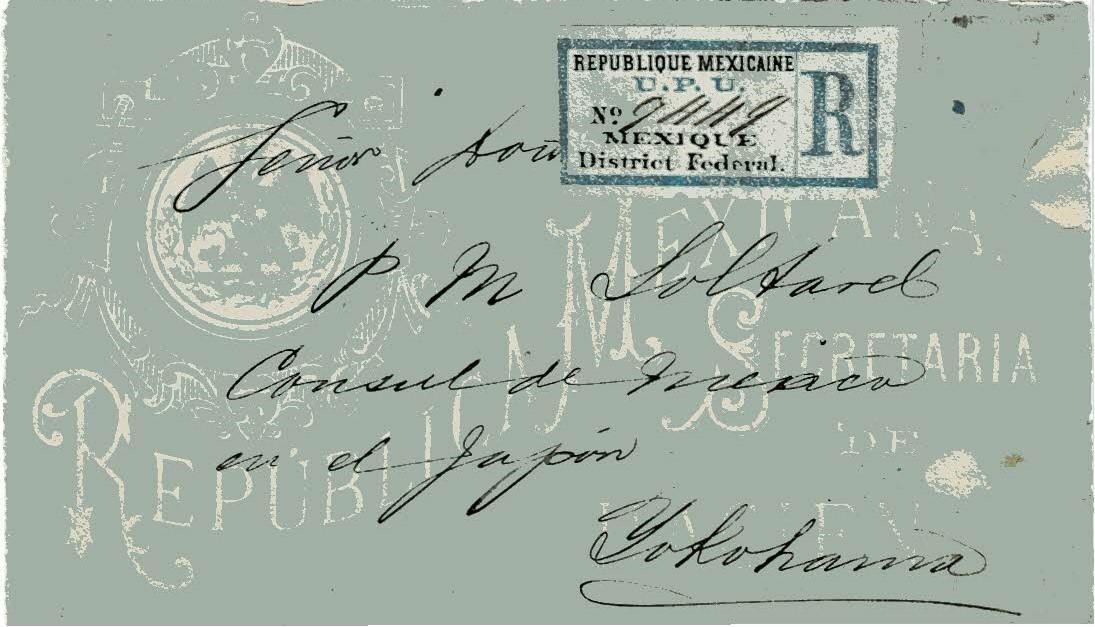 REPUBLIQUE MEXICAINE
U.P.U.
Nº
MEXIQUE
District Federal.
R
Señor Don
P M
Consul de Mexico
en el Japón
Yokohama
REPÚBLICA MEXICANA
SECRETARIA
DE